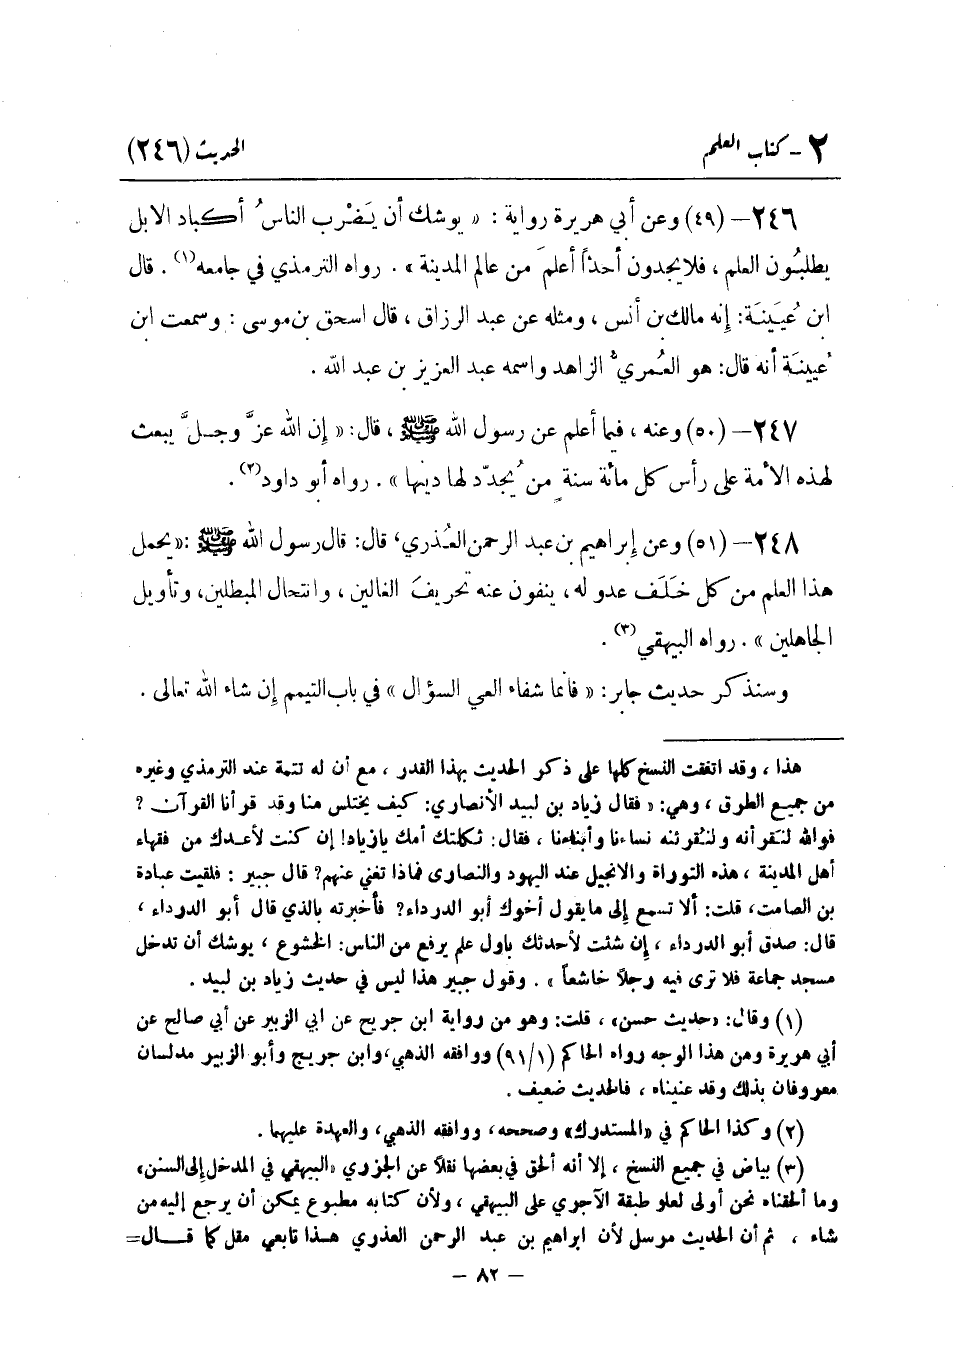 ٢ - كتاب العلم
الحديث (٢٤٦)
٢٤٦ – (٤٩) وعن أبي هريرة رواية : « يوشك أن يَضْرب الناسُ أكباد الابل
يطلبُون العلم ، فلا يجدون أحداً أعلمَ من عالم المدينة » . رواه الترمذي في جامعه(١) . قال
ابن عُيَينَة: إنه مالك بن أنس ، ومثله عن عبد الرزاق ، قال اسحق بن موسى : وسمعت ابن
عُيينَة أنه قال: هو العُمري الزاهد واسمه عبد العزيز بن عبد الله .
٢٤٧ – (٥٠) وعنه ، فيما أعلم عن رسول الله ﷺ ، قال: « إن الله عزَّ وجلَّ يبعث
لهذه الأمة على رأس كل مائة سنةٍ من يُجدّد لها دينها » . رواه أبو داود(٢) .
٢٤٨ – (٥١) وعن إبراهيم بن عبد الرحمن العُذري، قال: قال رسول الله ﷺ :« يحمل
هذا العلم من كل خَلَف عدوله ، ينفون عنه تحريفَ الغالين ، وانتحال المبطلين، وتأويل
الجاهلين » . رواه البيهقي(٣) .
وسنذكر حديث جابر: « فانما شفاء العي السؤال » في باب التيمم إن شاء الله تعالى .
هذا ، وقد اتفقت النسخ كلها على ذكر الحديث بهذا القدر ، مع أن له تتمة عند الترمذي وغيره
من جميع الطرق ، وهي: « فقال زياد بن لبيد الأنصاري: كيف يختلس منا وقد قرأنا القرآن ?
فوالله لنقرأنه ولنُقرئنه نساءنا وأبناءنا ، فقال: ثكلتك أمك يازياد! إن كنت لأعدك من فقهاء
أهل المدينة ، هذه التوراة والانجيل عند اليهود والنصارى فماذا تغني عنهم? قال جبير : فلقيت عبادة
بن الصامت، قلت: ألا تسمع إلى ما يقول أخوك أبو الدرداء? فأخبرته بالذي قال أبو الدرداء ،
قال: صدق أبو الدرداء ، إن شئت لأحدثك باول علم يرفع من الناس: الخشوع ، يوشك أن تدخل
مسجد جماعة فلا ترى فيه رجلاً خاشعاً » . وقول جبير هذا ليس في حديث زياد بن لبيد .
(١) وقال: «حديث حسن» ، قلت: وهو من رواية ابن جريح عن ابي الزبير عن أبي صالح عن
أبي هريرة ومن هذا الوجه رواه الحاكم (٩١/١) ووافقه الذهبي،وابن جريج وأبو الزبير مدلسان
معروفان بذلك وقد عنيناه ، فالحديث ضعيف .
(٢) وكذا الحاكم في «المستدرك» وصححه، ووافقه الذهبي، والعهدة عليهما .
(٣) بياض في جميع النسخ ، إلا أنه ألحق في بعضها نقلاً عن الجزري «البيهقي في المدخل إلى السنن»
وما ألحقناه نحن أولى لعلو طبقة الآجري على البيهقي ، ولأن كتابه مطبوع يمكن أن يرجع إليه من
شاء ، ثم أن الحديث مرسل لأن ابراهيم بن عبد الرحمن العذري هذا تابعي مقل كما قال=
– ٨٢ –